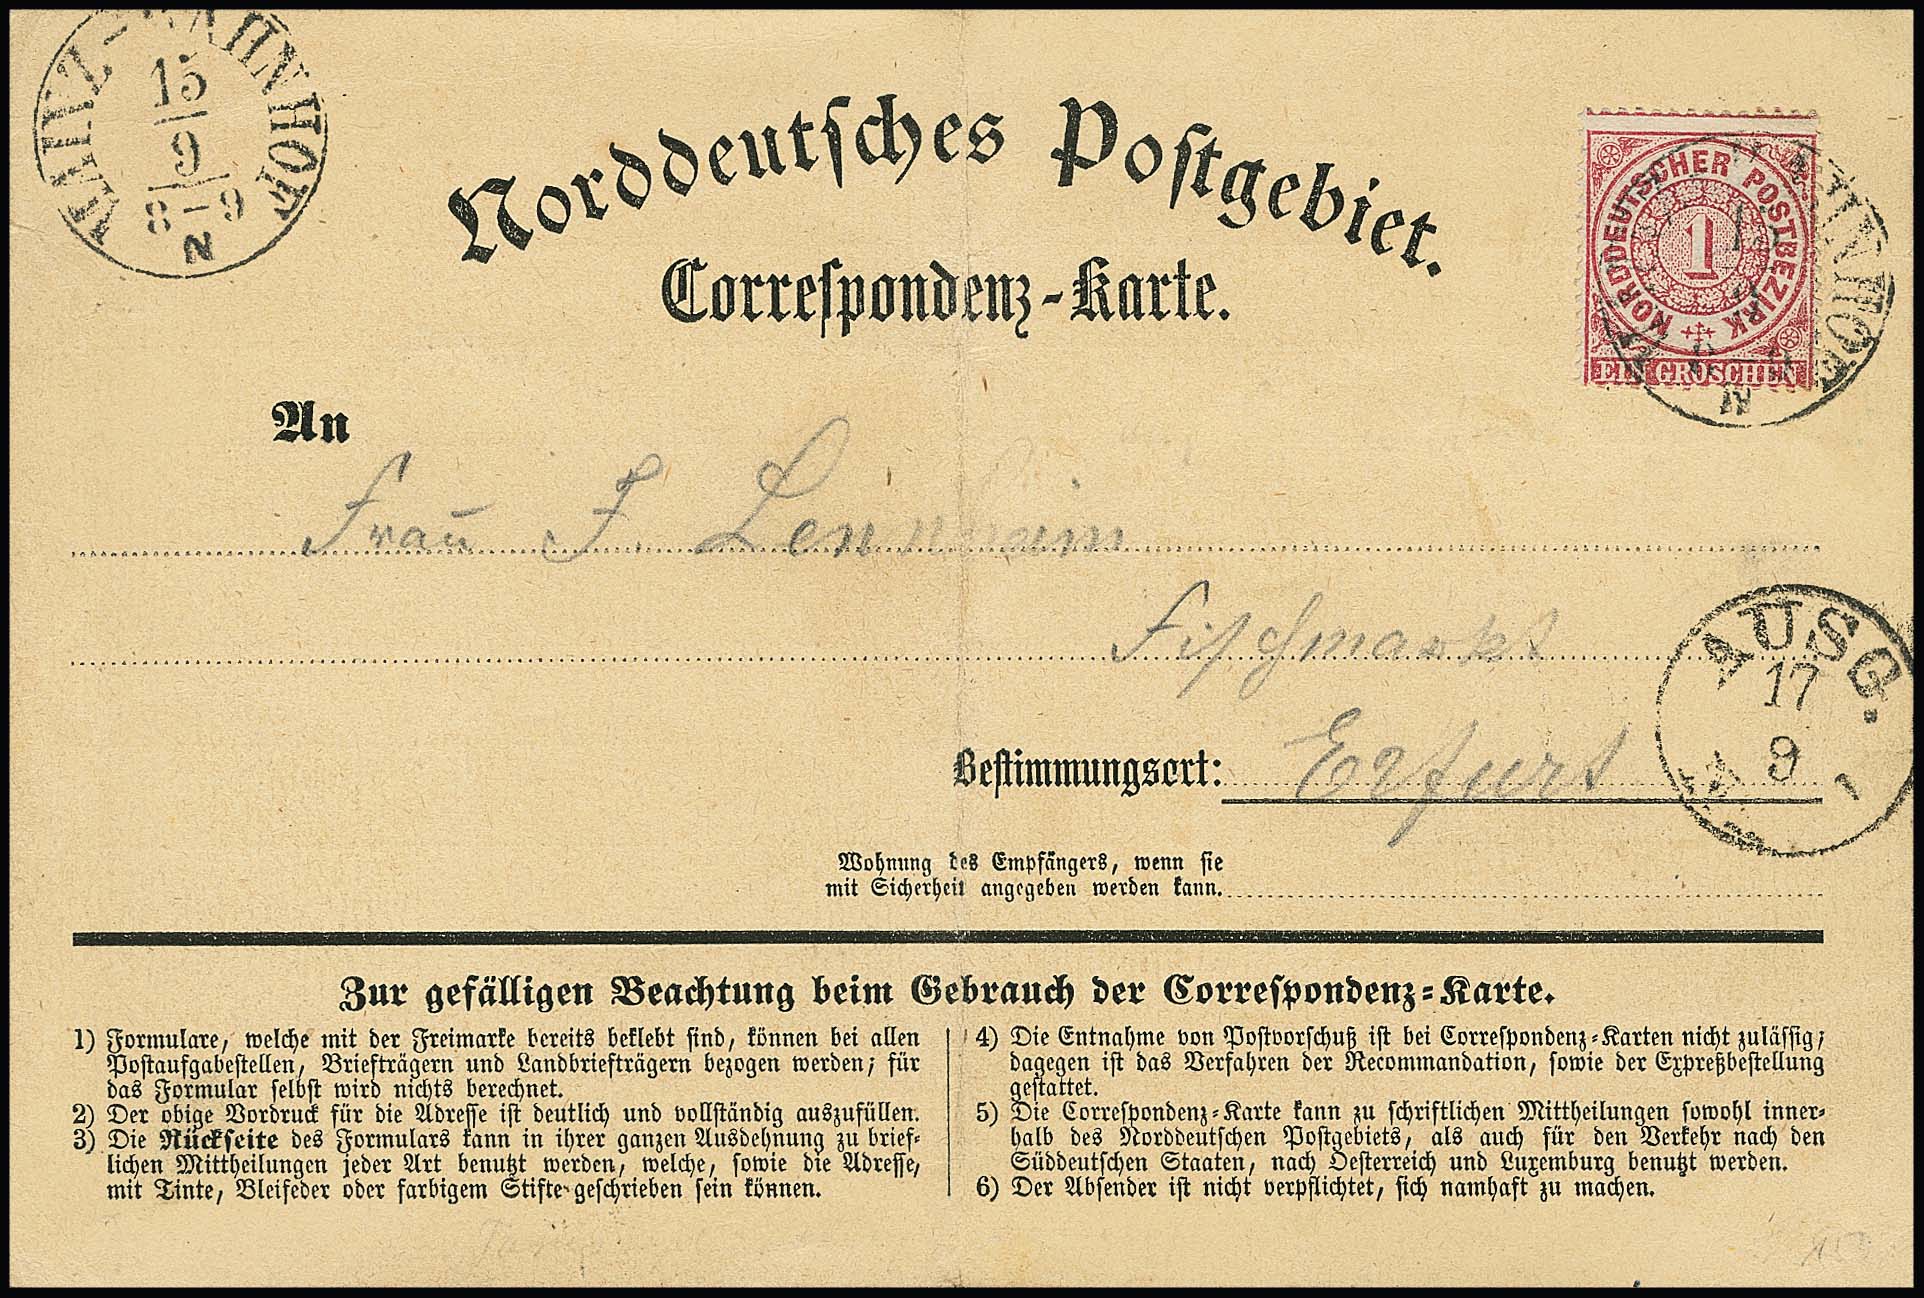 MAINZ-BAHNHOF
15
9
8-9
N
Norddeutsches Postgebiet.
Correspondenz-Karte.
NORDDEUTSCHER POSTBEZIRK
1
EIN GROSCHEN
N
An
Frau F.
Fischmarkt
AUSG.
17
9
1
Bestimmungsort: Erfurt
Wohnung des Empfängers, wenn sie
mit Sicherheit angegeben werden kann.
Zur gefälligen Beachtung beim Gebrauch der Correspondenz-Karte.
1) Formulare, welche mit der Freimarke bereits beklebt sind, können bei allen
Postaufgabestellen, Briefträgern und Landbriefträgern bezogen werden; für
das Formular selbst wird nichts berechnet.
2) Der obige Vordruck für die Adresse ist deutlich und vollständig auszufüllen.
3) Die Rückseite des Formulars kann in ihrer ganzen Ausdehnung zu brief-
lichen Mittheilungen jeder Art benutzt werden, welche, sowie die Adresse,
mit Tinte, Bleifeder oder farbigem Stifte geschrieben sein können.
4) Die Entnahme von Postvorschuß ist bei Correspondenz-Karten nicht zulässig;
dagegen ist das Verfahren der Recommandation, sowie der Expreßbestellung
gestattet.
5) Die Correspondenz-Karte kann zu schriftlichen Mittheilungen sowohl inner-
halb des Norddeutschen Postgebiets, als auch für den Verkehr nach den
Süddeutschen Staaten, nach Oesterreich und Luxemburg benutzt werden.
6) Der Absender ist nicht verpflichtet, sich namhaft zu machen.